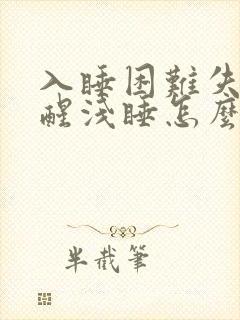 入睡困難失
醒淺睡怎麼
半截筆